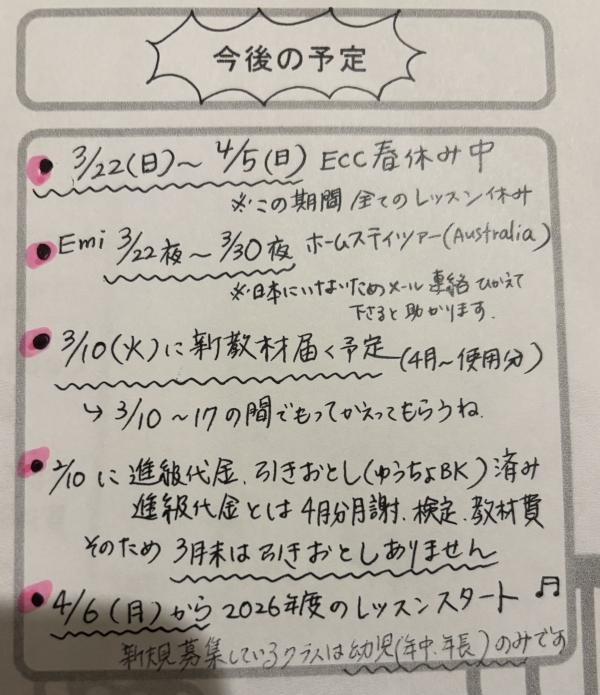 今後の予定
3/22(日)～4/5(日) ECC春休み中
※この期間 全てのレッスン休み
Emi 3/22夜～3/30夜 ホームスティツアー(Australia)
※日本にいないためメール連絡ひかえて
下さると助かります.
3/10(火)に新教材届く予定(4月～使用分)
↳ 3/10～17の間でもってかえってもらうね.
2/10に進級代金、引きおとし(ゆうちょBK)済み
進級代金とは4月分月謝、検定、教材費
そのため 3月末は引きおとしありません
4/6(月)から2026年度のレッスンスタート♬
新規募集しているクラスは幼児(年中、年長)のみです